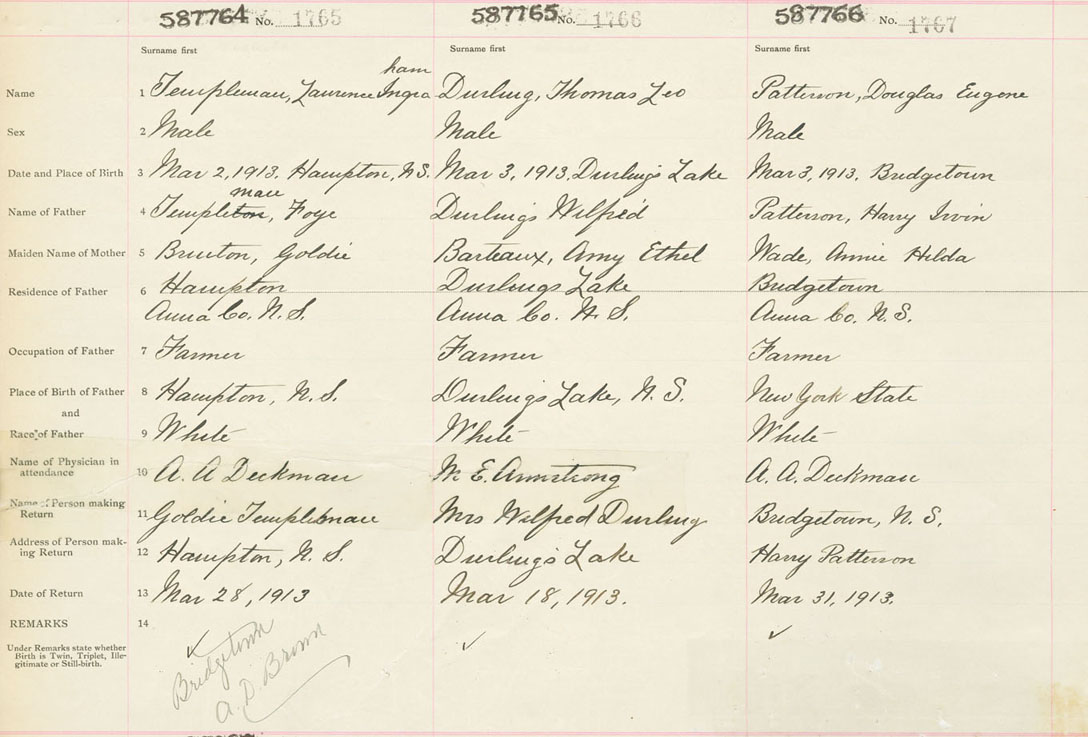 587764 No. 1765 587765 No. 1766 587766 No. 1767
Surname first Surname first Surname first
ham
Name 1 Templeman, Laurence Ingra Durling, Thomas Leo Patterson, Douglas Eugene
Sex 2 Male Male Male
Date and Place of Birth 3 Mar 2, 1913. Hampton, N.S. Mar 3, 1913, Durlings Lake Mar 3, 1913, Bridgetown
man
Name of Father 4 Templeton, Foye Durlings Wilfred Patterson, Harry Irvin
Maiden Name of Mother 5 Brinton, Goldie Barteaux, Amy Ethel Wade, Annie Hilda
Residence of Father 6 Hampton Durlings Lake Bridgetown
Anna Co. N.S. Anna Co. N.S. Anna Co. N.S.
Occupation of Father 7 Farmer Farmer Farmer
Place of Birth of Father 8 Hampton, N.S. Durlings Lake, N.S. New York State
and
Race of Father 9 White White White
Name of Physician in
attendance 10 A. A Deckman M. E. Armstrong A. A. Deckman
Name of Person making
Return 11 Goldie Templeman Mrs Wilfred Durling Bridgetown, N.S.
Address of Person mak-
ing Return 12 Hampton, N.S. Durling's Lake Harry Patterson
Date of Return 13 Mar 28, 1913 Mar 18, 1913. Mar 31, 1913.
REMARKS 14
Under Remarks state whether
Birth is Twin, Triplet, Ille-
gitimate or Still-birth.
Bridgetown
A. D. Brown